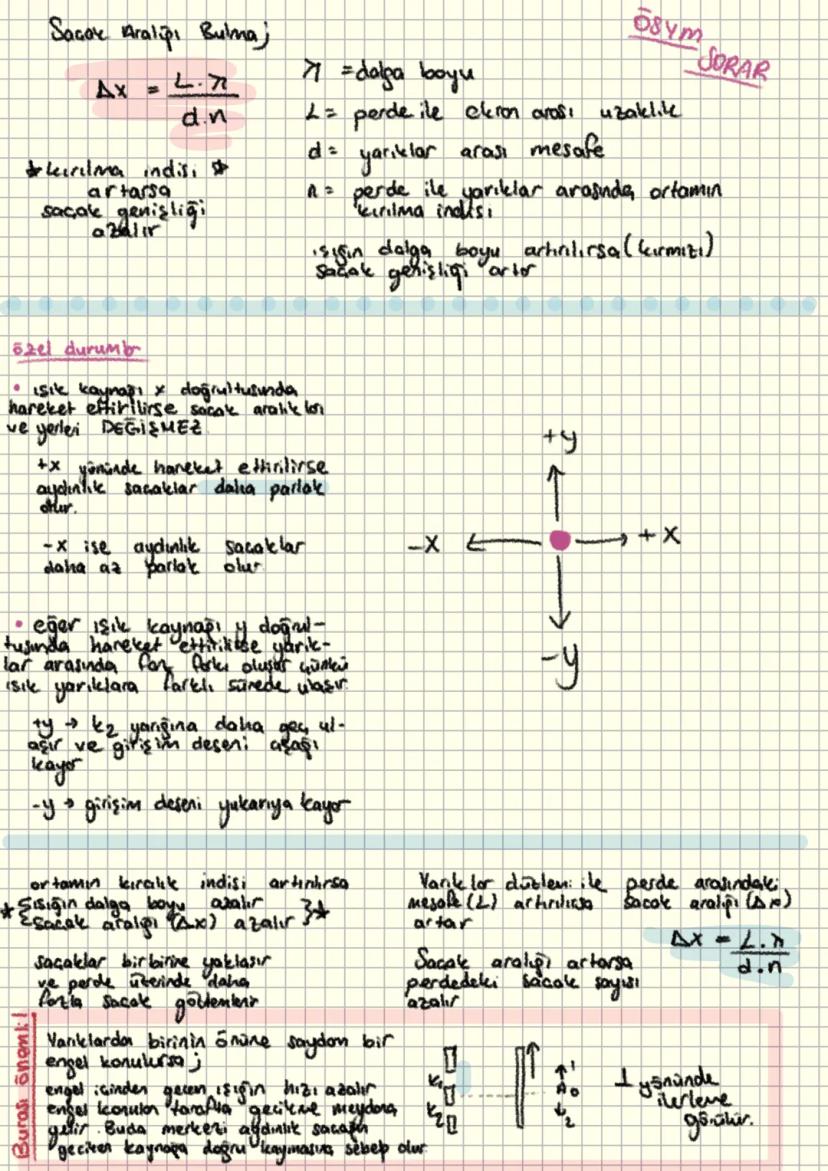 Saçak Aralığı Bulma;
ÖSYM
SORAR
Δx = L.λ / d.n
λ = dalga boyu
L = perde ile ekran arası uzaklık
d = yarıklar arası mesafe
n = perde ile yarıklar arasında ortamın
kırılma indisi
*kırılma indisi *
artarsa
saçak genişliği
azalır
ışığın dalga boyu artırılırsa (kırmızı)
saçak genişliği artar
özel durumlar
• ışık kaynağı x doğrultusunda
hareket ettirilirse saçak aralıkları
ve yerleri DEĞİŞMEZ
+x yönünde hareket ettirilirse
aydınlık saçaklar daha parlak
olur.
-x ise aydınlık saçaklar
daha az parlak olur
+y
-x
+x
-y
• eğer ışık kaynağı y doğrul-
tusunda hareket ettirilirse yarık-
lar arasında faz farkı oluşur çünkü
ışık yarıklara farklı sürede ulaşır.
+y → k2 yarığına daha geç ul-
aşır ve girişim deseni aşağı
kayar
-y → girişim deseni yukarıya kayar
ortamın kırıcılık indisi artırılırsa
* {ışığın dalga boyu azalır
saçak aralığı (Δx) azalır }*
saçaklar birbirine yaklaşır
ve perde üzerinde daha
fazla saçak gözlemlenir
Yarıklar düzlemi ile perde arasındaki
mesafe (L) artırılırsa saçak aralığı (Δx)
artar
Δx = L.λ / d.n
Saçak aralığı artarsa
perdedeki saçak sayısı
azalır
Burası önemli!
Yarıklarda birinin önüne saydam bir
engel konulursa;
engel içinden geçen ışığın hızı azalır
engel konulan tarafta gecikme meydana
gelir. Buda merkezi aydınlık saçağın
geciken kaynağa doğru kaymasına sebep olur.
K1
K2
1
A0
2
1 yönünde
ilerleme
görülür.